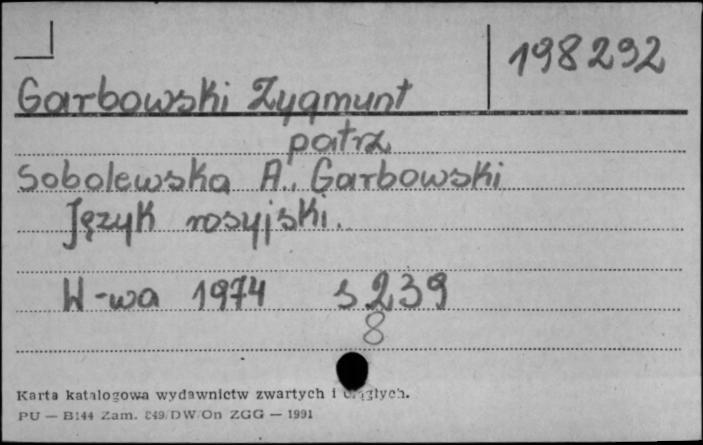 198292
Garbowski Zygmunt
patrz
Sobolewska A., Garbowski
Język rosyjski.
W-wa 1974 s 239
8
Karta katalogowa wydawnictw zwartych i ciągłych.
PU — B144 Zam. 849/DW/On ZGG — 1991